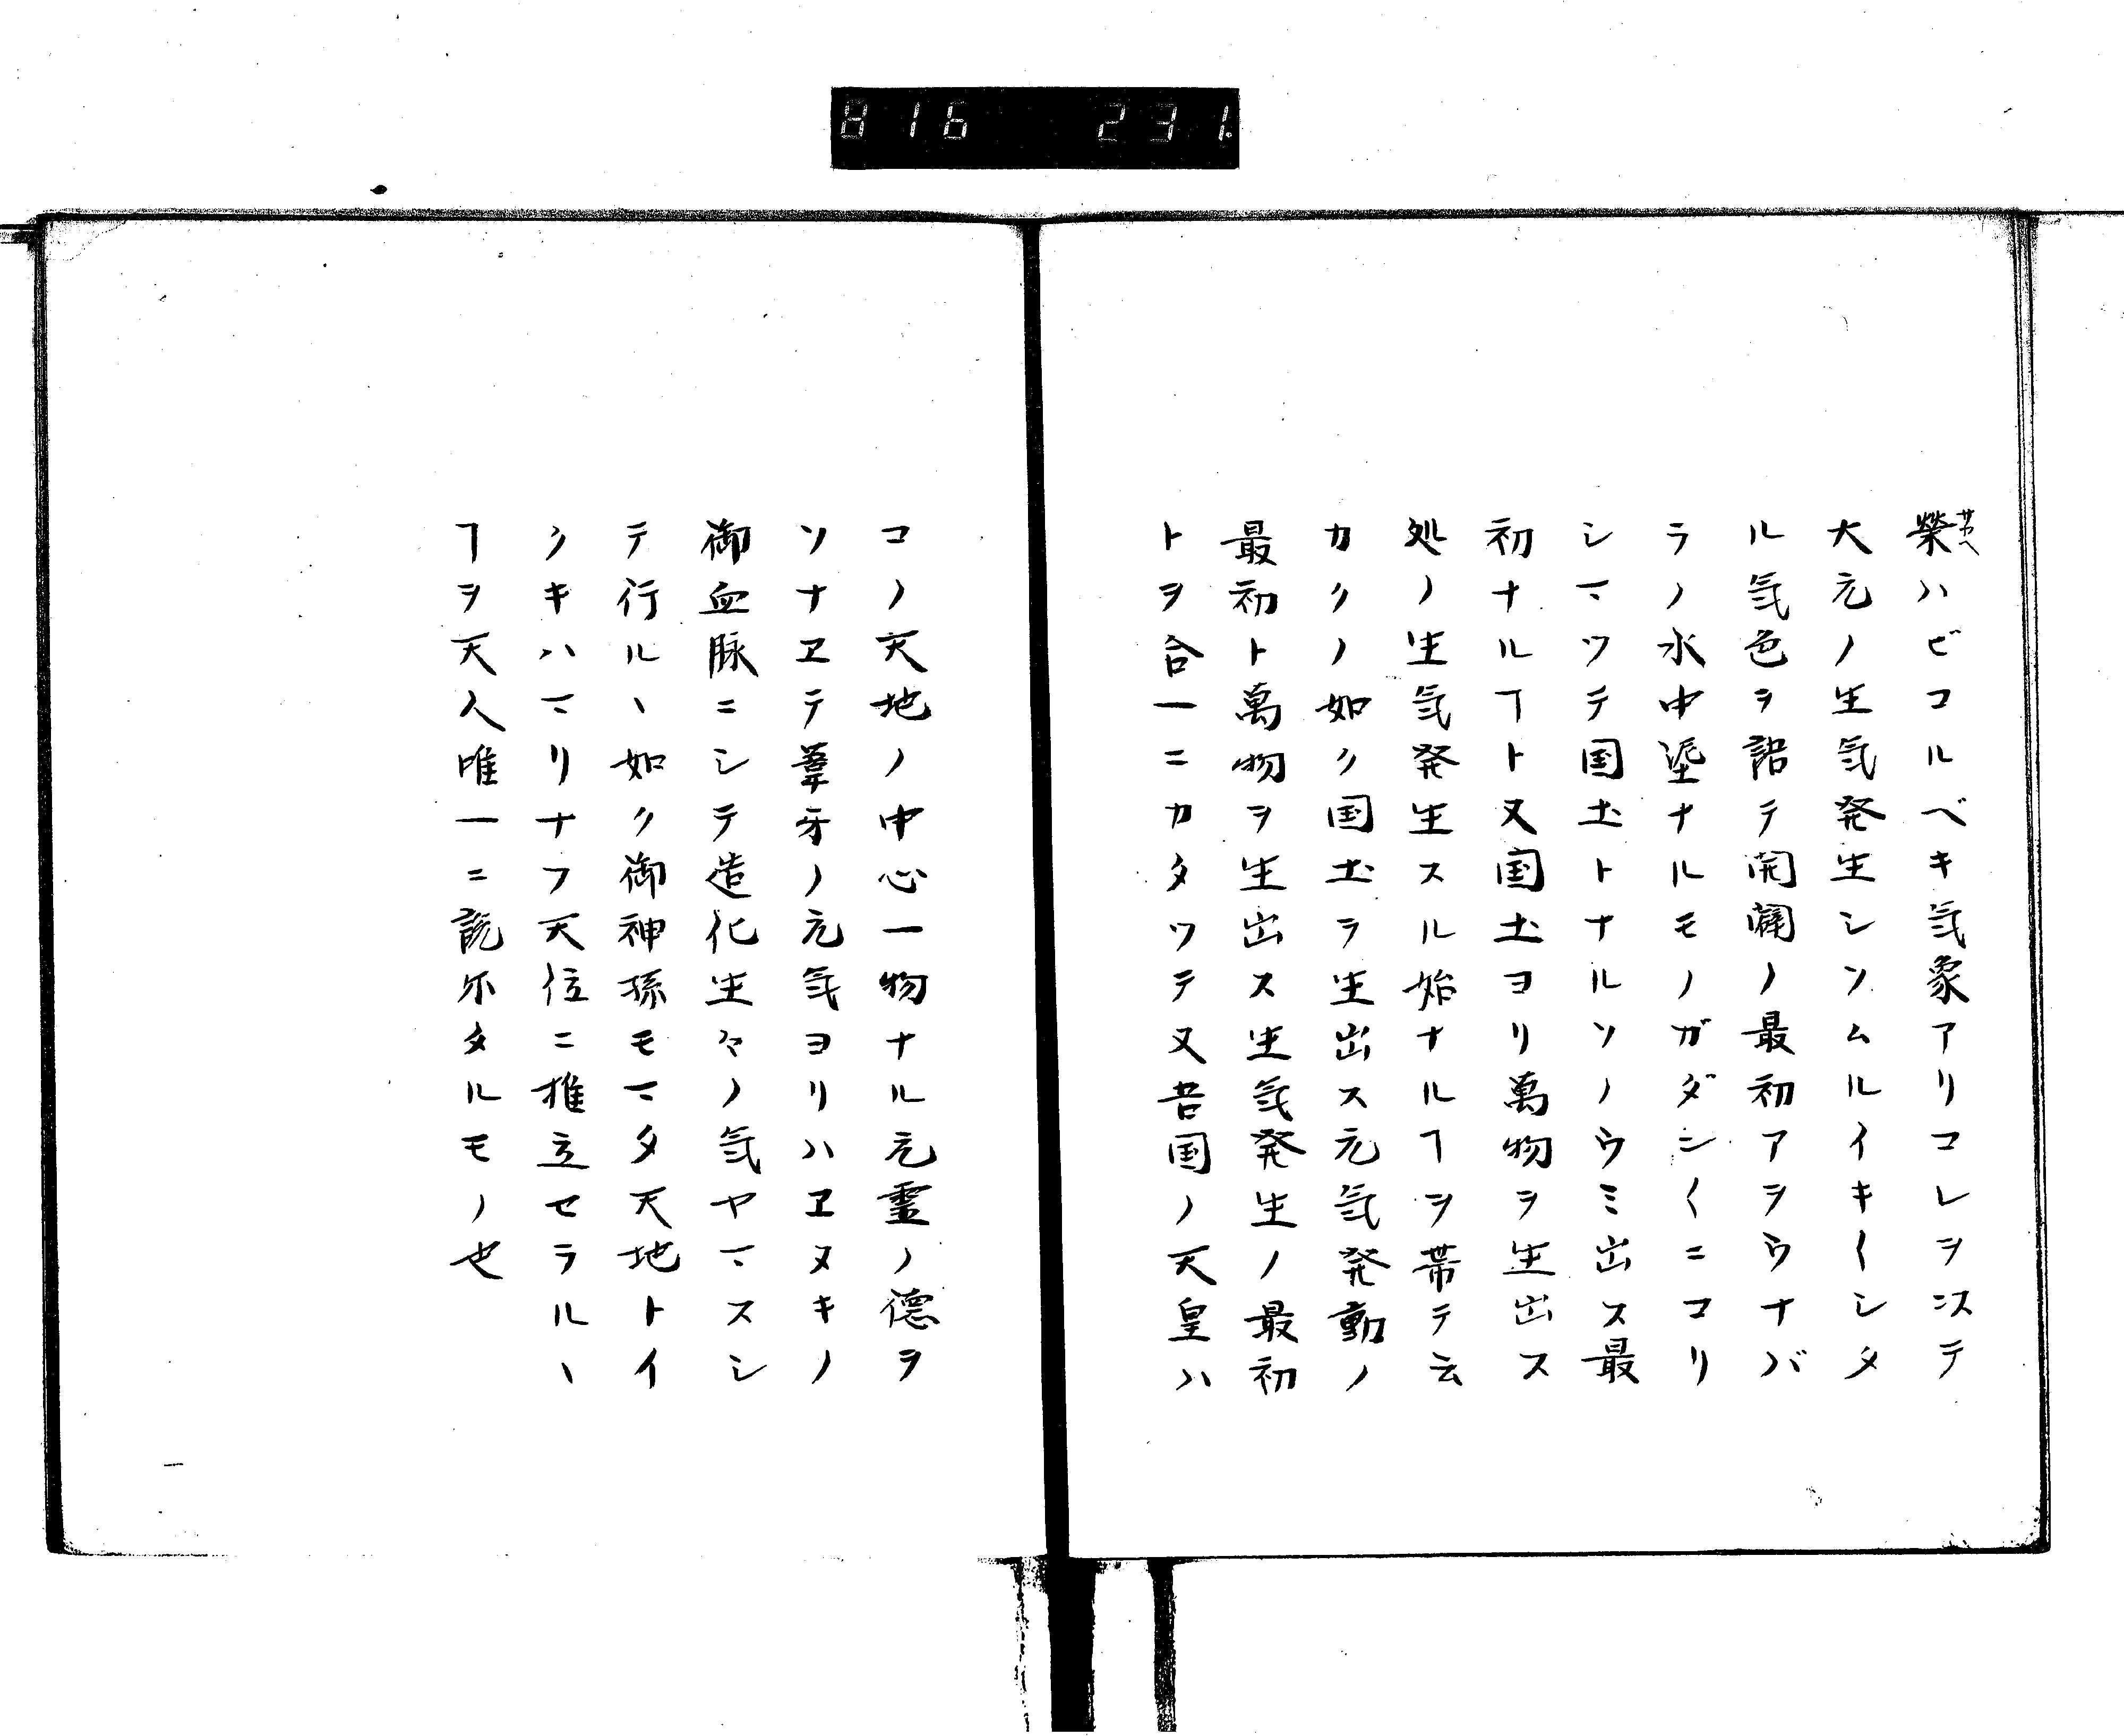 816 231
榮ハビコルベキ気象アリコレヲンステ
サカヘ
大元ノ生気発生シソムルイキ〱シタ
ル気色ヲ語テ開闢ノ最初アヲウナバ
ラノ水中埿ナルモノガダン〱ニコリ
シマツテ国土トナルソノウミ出ス最
初ナルヿト又国土ヨリ萬物ヲ生出ス
処ノ生気発生スル始ナルヿヲ帯テ云
カクノ如ク国土ヲ生出ス元気発動ノ
最初ト萬物ヲ生出ス生気発生ノ最初
トヲ合一ニカタツテ又吾国ノ天皇ハ
コノ天地ノ中心一物ナル元霊ノ德ヲ
ソナヱテ葦牙ノ元気ヨリハヱヌキノ
御血脉ニシテ造化生々ノ気ヤマスシ
テ行ルヽ如ク御神孫モマタ天地トイ
クキハマリナフ天位ニ推立セラルヽ
ヿヲ天人唯一ニ説尓タルモノ也